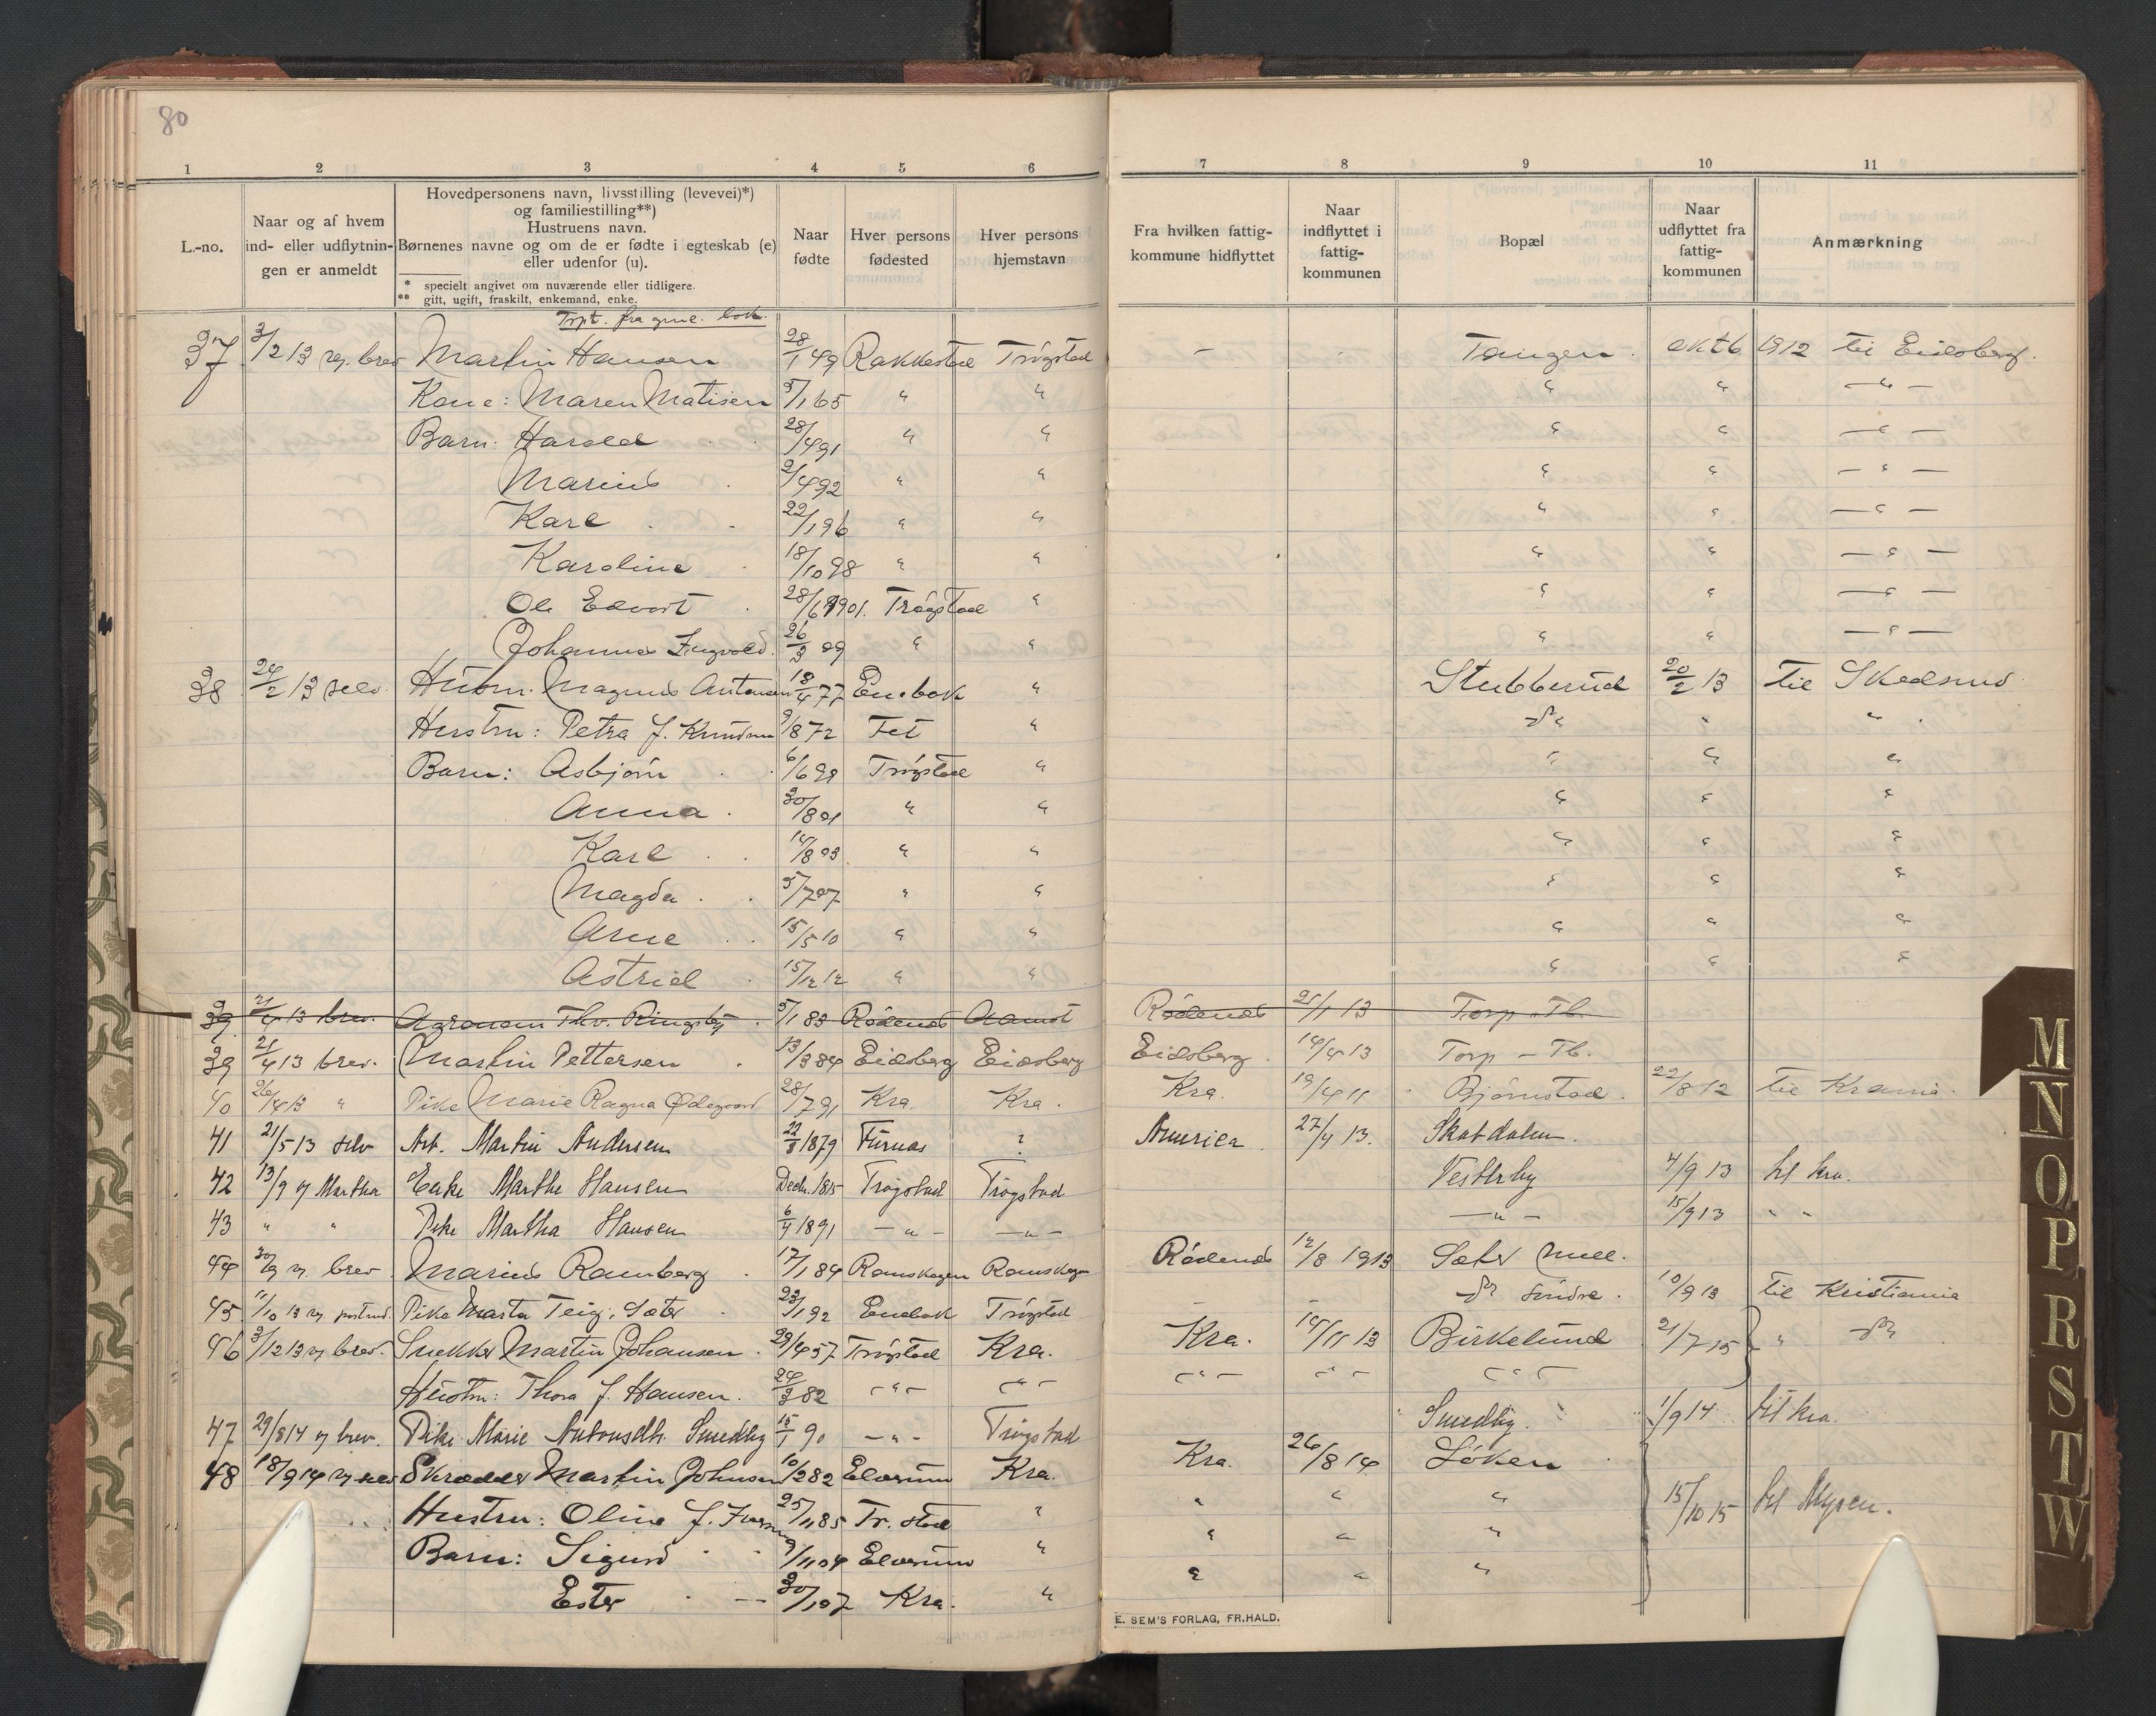 80
1 2 3 4 5 6 7 8 9 10 11
L.-no.
Naar og af hvem
ind- eller udflytnin-
gen er anmeldt
Hovedpersonens navn, livsstilling (levevei)*)
og familiestilling**)
Hustruens navn.
Børnenes navne og om de er fødte i egteskab (e)
eller udenfor (u).
* specielt angivet om nuværende eller tidligere.
** gift, ugift, fraskilt, enkemand, enke.
Naar
fødte
Hver persons
fødested
Hver persons
hjemstavn
Fra hvilken fattig-
kommune hidflyttet
Naar
indflyttet i
fattig-
kommunen
Bopæl
Naar
udflyttet fra
fattig-
kommunen
Anmærkning
fra gml. bok.
37 3/2 13 vg. brev Martin Hansen 28/1 49 Rakkestad Trøgstad - - Tangen. oktb. 1912 til Eidsberg.
Kone: Maren Matisen 5/1 65 " " " " —"—
Barn: Harald 28/4 91 " " " " —"—
Marius 2/4 92 " " " " —"—
Karl 22/1 96 " " " " —"—
Karoline 18/10 98 " " " " —"—
Ole Edvart 28/6 1901. Trøgstad " " " —"—
Johannes Ingvald. 26/3 09 " " " " —"—
38 24/2 13 selv Husm. Magnus Antonsen 18/4 77 Enebak " Stubberud 20/2 13 til Skedsmo
Hustru: Petra f. Knudsen 9/8 72 Fet " do " "
Barn: Asbjørn 6/6 99 Trøgstad " " " "
Anna. 30/8 01 " " " " "
Karl 14/8 03 " " " " "
Magda 5/7 07 " " " " "
Arne 15/5 10 " " " " "
Astrid 15/12 12 " " " "
39. 21/4 13 brev. Agronom Thv. Ringsby 5/1 83 Rødenes Aamot Rødenes 21/1 13 Torp Tb.
39 21/4 13 brev. Martin Pettersen 13/3 84 Eidsberg Eidsberg Eidsberg. 14/4 13 Torp - Tb.
40 26/4 13 " Pike Marie Ragna Ødegaard 28/7 91 Kra. Kra. Kra. 19/4 11 Bjørnstad. 22/8 12 til Krania.
41 21/5 13 selv Arb. Martin Andersen 22/8 1879 Furnes ? Amerika 27/4 13. Skatdalen.
42 13/9 v/ Martha Enke Marthe Hansen Decbr. 1815 Trøgstad Trøgstad Vesterby 4/9 13 til Kra.
43 " " Pike Martha Hansen 6/4 1891 —"— —"— —"— 15/9 13 " "
44 30/9 v. brev Marius Ramberg. 17/1 84 Rømskogen Rømskogen Rødenes 12/8 1913 Sæter mell.
45 11/10 13 Pike Marta Teig, Sæter 23/1 92 Enebak Trøgstad - - do søndre. 10/9 13 til Kristiania
46 3/12 13 v/ brev. Snekker Martin Johansen. 29/4 57 Trøgstad Kra. Kra. 14/11 13 Birkelund 21/7 15 " do
Hustru: Thora f. Hansen. 24/3 82 —"— —"— —"— —"— —"—
47 29/8 14 v/ brev. Pike Marie Antonsdtr. Smedby 15/1 90 —"— Trøgstad Smedby. 1/9 14 til Kra.
48 18/9 14 v/ selv Skrædder Martin Johnsen 10/2 82 Elverum Kra. Kra. 26/8 14 Løken
Hustru: Oline f. Iversen 25/11 85 Tr. stad " " " " 15/10 15 til Mysen.
Barn: Sigurd 9/11 04 Elverum " " " "
Ester 30/1 07 Kra. " " " "
E. SEM'S FORLAG, FR.HALD.
M
N
O
P
R
S
T
W